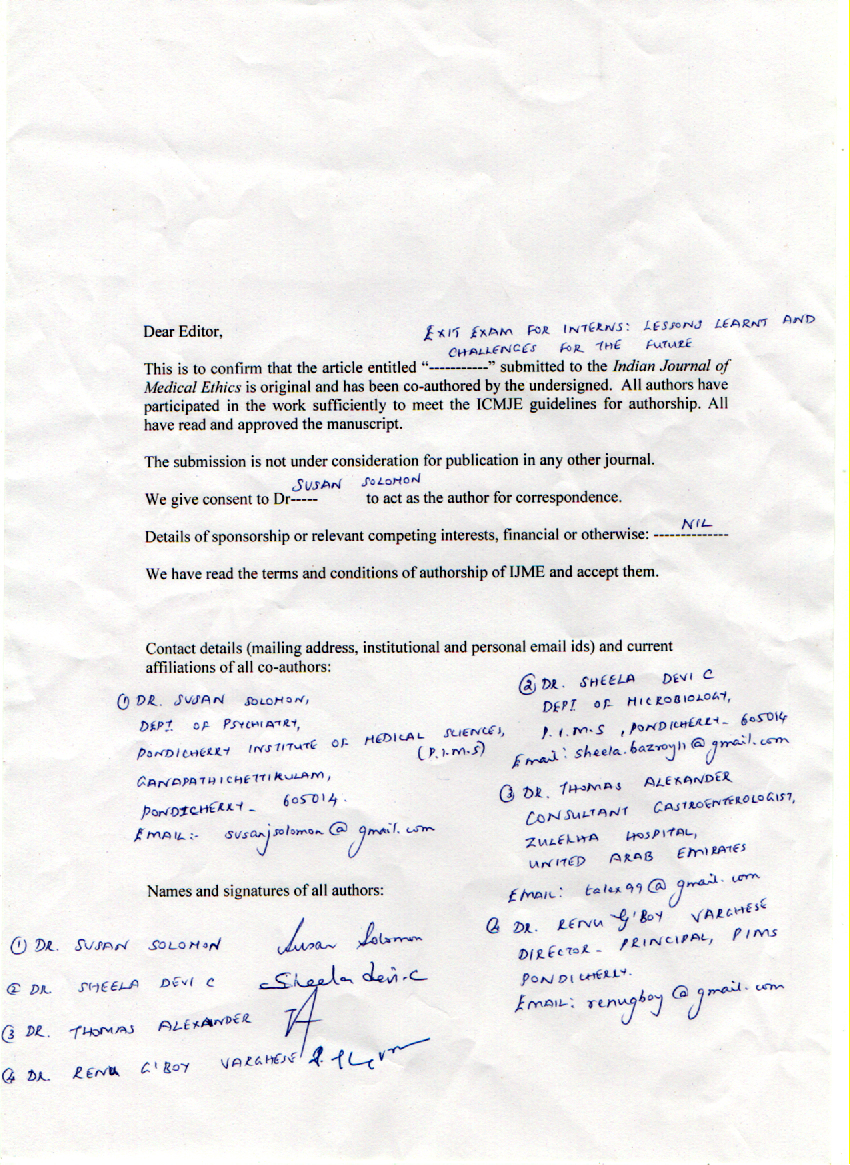 Dear Editor,
EXIT EXAM FOR INTERNS: LESSONS LEARNT AND
CHALLENGES FOR THE FUTURE
This is to confirm that the article entitled “-----------” submitted to the Indian Journal of
Medical Ethics is original and has been co-authored by the undersigned. All authors have
participated in the work sufficiently to meet the ICMJE guidelines for authorship. All
have read and approved the manuscript.
The submission is not under consideration for publication in any other journal.
SUSAN SOLOMON
We give consent to Dr----- to act as the author for correspondence.
NIL
Details of sponsorship or relevant competing interests, financial or otherwise: --------------
We have read the terms and conditions of authorship of IJME and accept them.
Contact details (mailing address, institutional and personal email ids) and current
affiliations of all co-authors:
① DR. SUSAN SOLOMON,
DEPT OF PSYCHIATRY,
PONDICHERRY INSTITUTE OF MEDICAL SCIENCES,
(P.I.M.S)
GANAPATHICHETTIKULAM,
PONDICHERRY- 605014.
EMAIL:- susanjsolomon@gmail.com
② DR. SHEELA DEVI C
DEPT OF MICROBIOLOGY,
P.I.M.S, PONDICHERRY- 605014
Email: sheela.bazroy11@gmail.com
③ DR. THOMAS ALEXANDER
CONSULTANT GASTROENTEROLOGIST,
ZULEKHA HOSPITAL,
UNITED ARAB EMIRATES
EMAIL: talex99@gmail.com
④ DR. RENU G'BOY VARGHESE
DIRECTOR- PRINCIPAL, PIMS
PONDICHERRY.
EMAIL: renugboy@gmail.com
Names and signatures of all authors:
① DR. SUSAN SOLOMON Susan Solomon
② DR SHEELA DEVI C Sheela devi-C
③ DR. THOMAS ALEXANDER
④ DR. RENU G'BOY VARGHESE